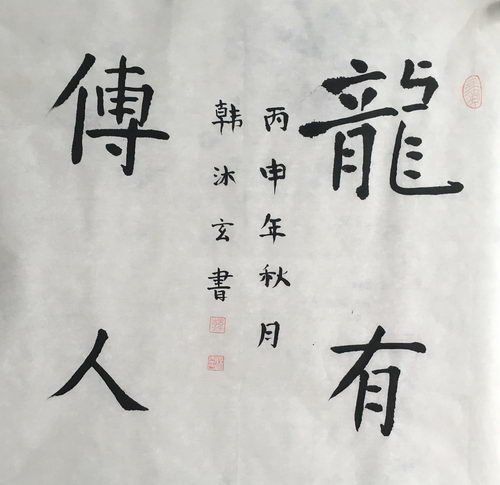 龍有
傳人
丙申年秋月
韩沐玄書